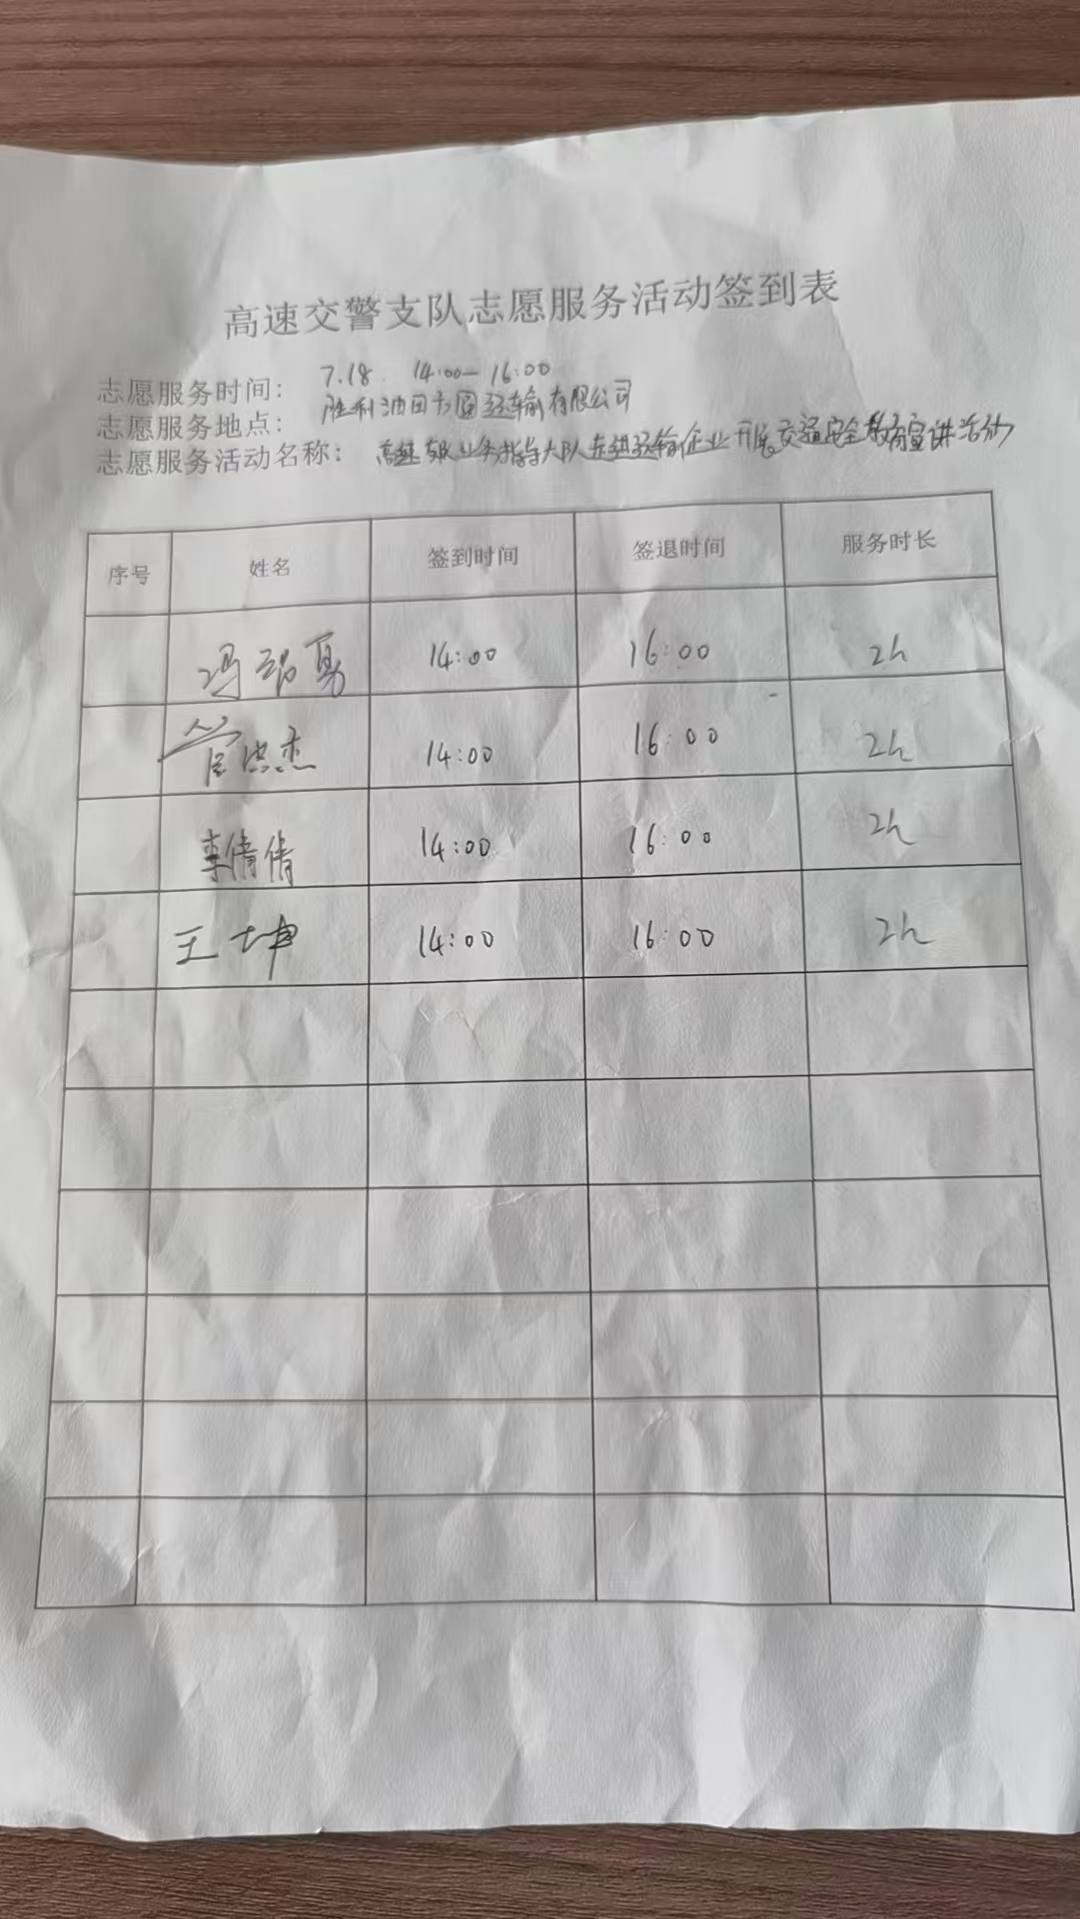 高速交警支队志愿服务活动签到表
志愿服务时间： 7.18. 14:00—16:00
志愿服务地点： 胜利油田方圆运输有限公司
志愿服务活动名称： 高速交警业务指导大队走进运输企业开展交通安全教育宣讲活动
序号 姓名 签到时间 签退时间 服务时长
冯 勇 14:00 16:00 2h
管洪杰 14:00 16:00 2h
李倩倩 14:00 16:00 2h
王坤 14:00 16:00 2h